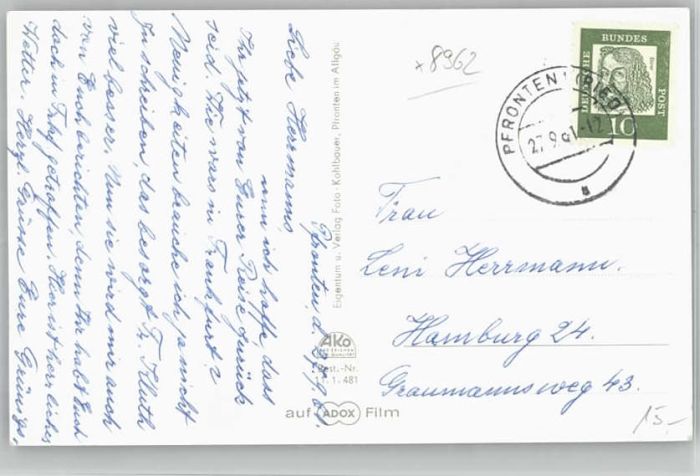 Pfronten, d. 27.9.61.
Liebe Herrmanns,
nun ich hoffe, dass
Ihr jetzt von Eurer Reise zurück
seid. Wie wars in Frankfurt?
Neuigkeiten brauche ich ja nicht
zu schreiben, das besorgt Fr. Kluth
viel besser. Nun sie wird mir auch
von Euch berichten, denn Ihr habt Euch
doch in getroffen. Hier ist herrliches
Wetter. Herzl. Grüsse Eure
Eigentum u. Verlag Foto-Kohlbauer, Pfronten im Allgäu
x 8962
DEUTSCHE
BUNDES
POST
Dürer
10
PFRONTEN (RIED)
27.9.61.-12
a
Frau
Leni Herrmann.
Hamburg 24.
Graumannsweg 43.
AKO
Best.-Nr.
11.1.481
auf ADOX Film
15.-